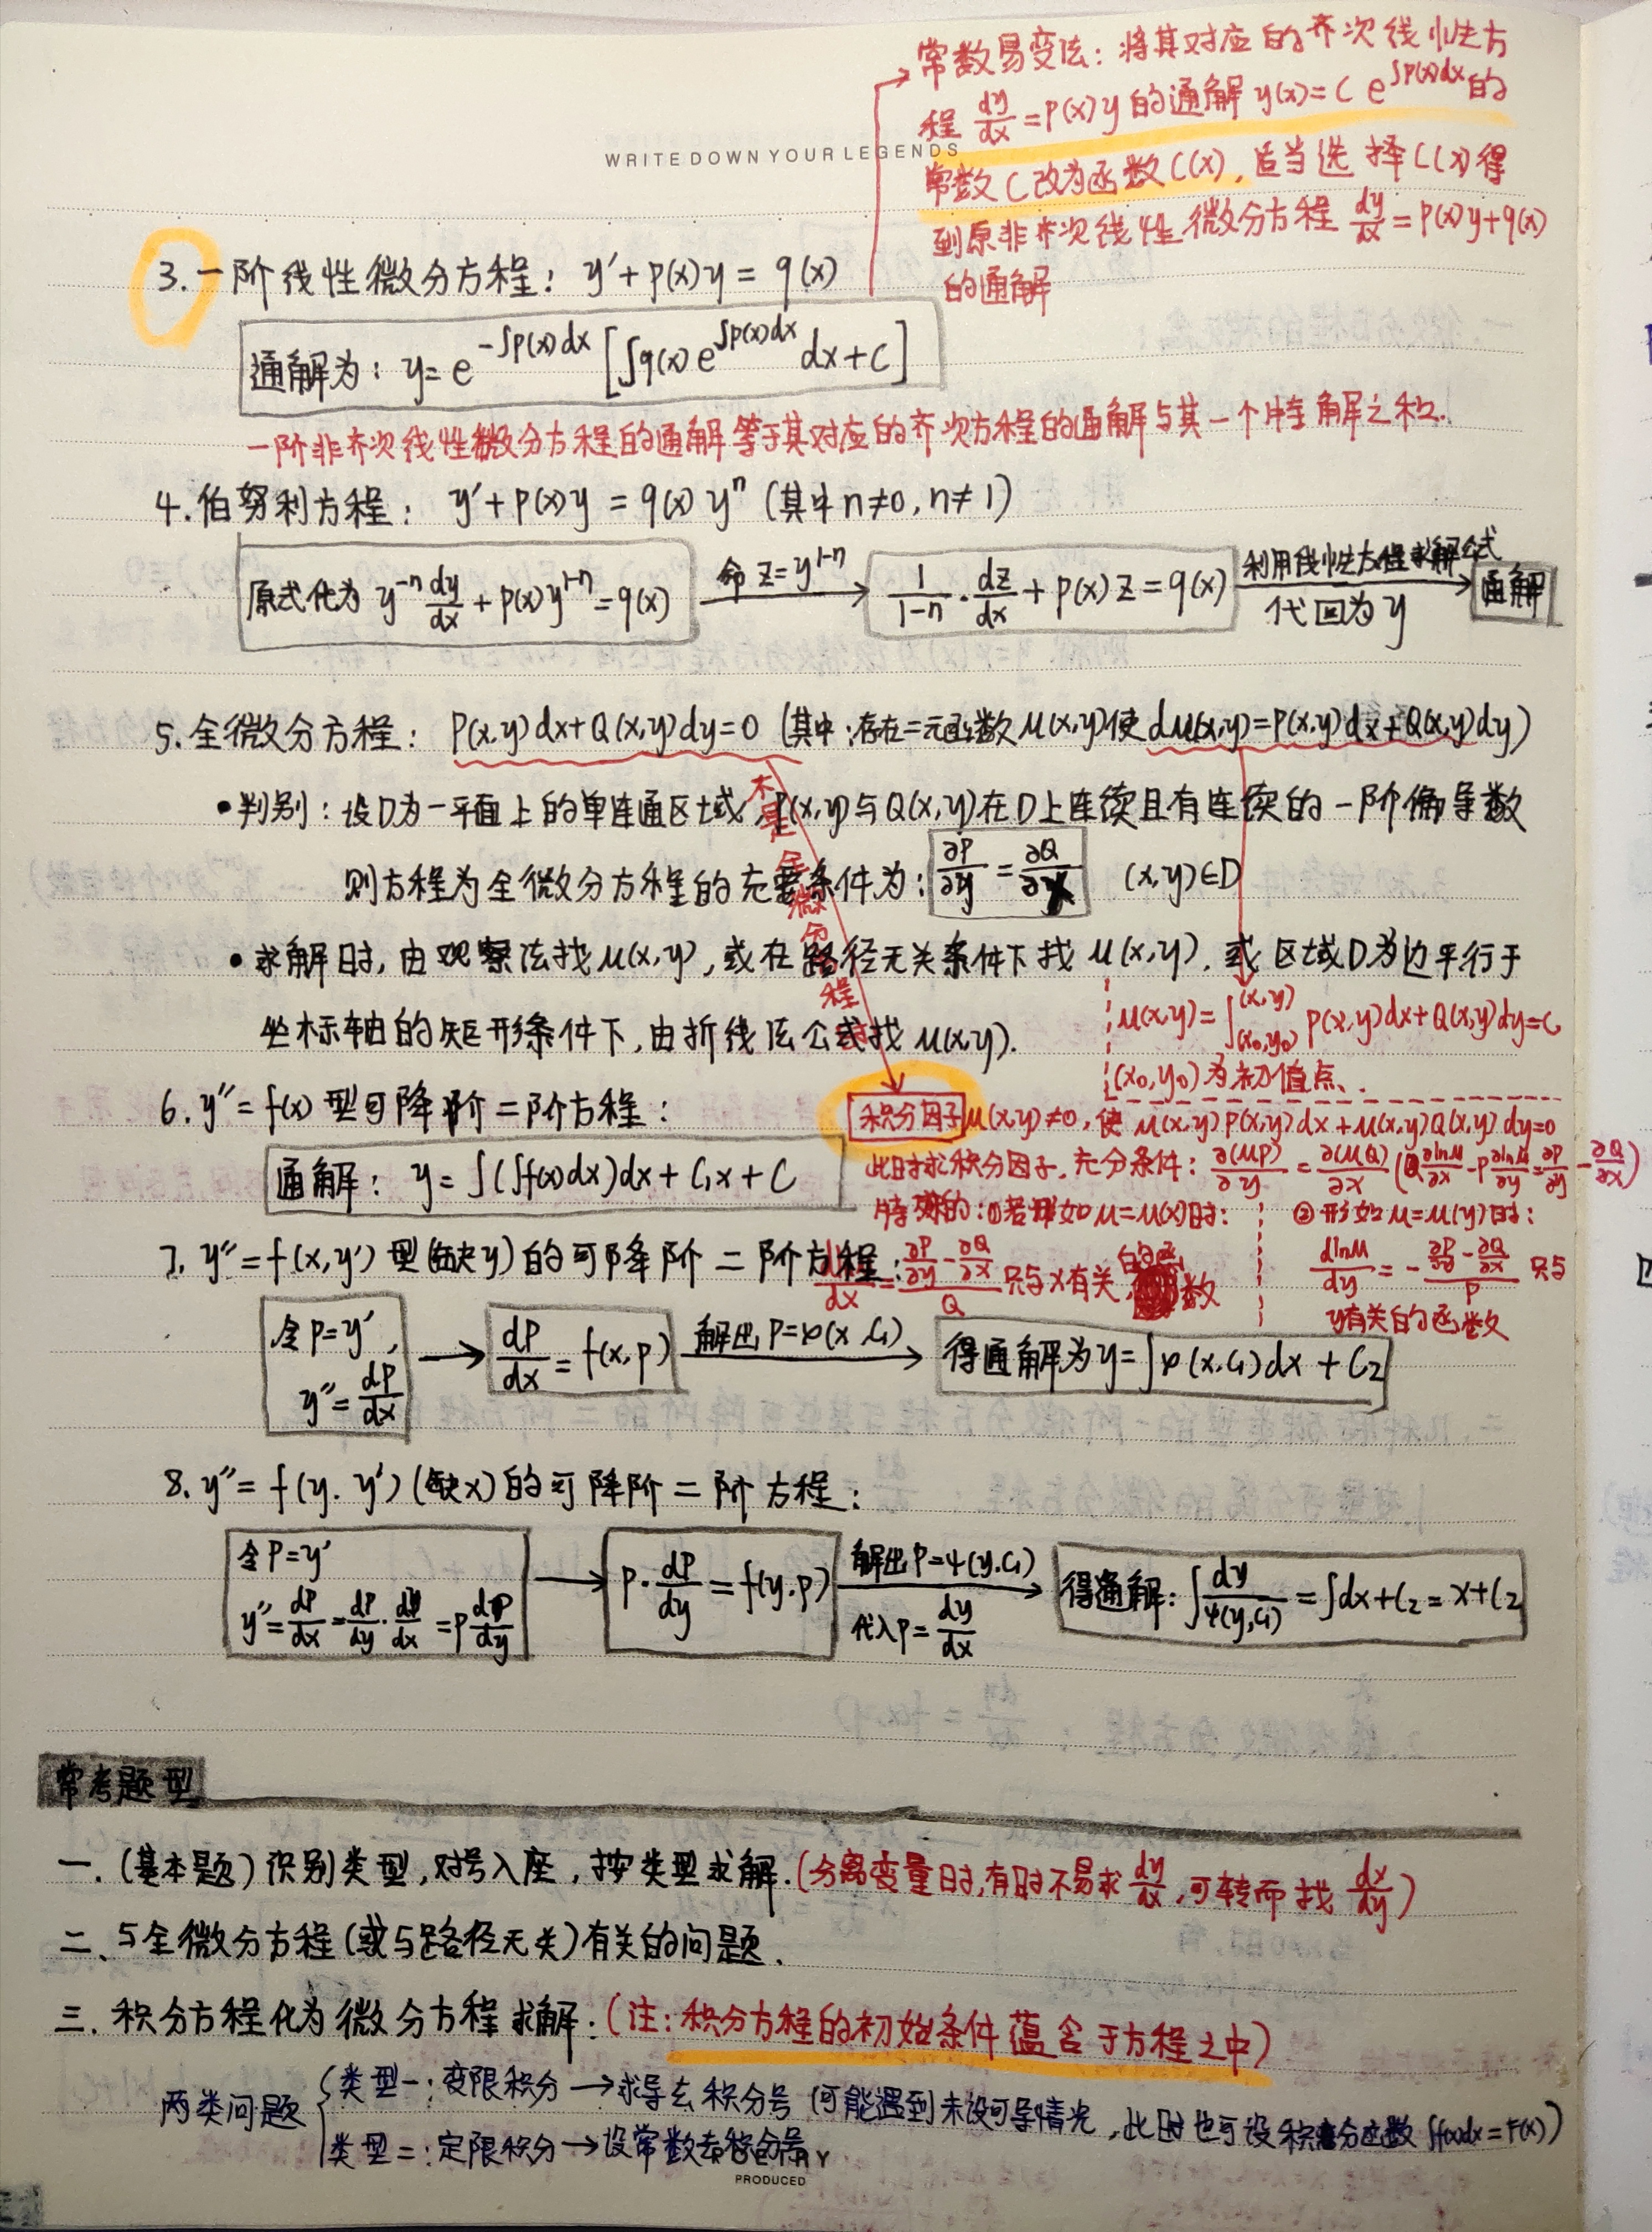 常数易变法：将其对应的齐次线性方
程 dy/dx = p(x)y 的通解 y(x) = C e^{∫p(x)dx} 的
WRITE DOWN YOUR LEGENDS
常数C改为函数C(x)，适当选择C(x)得
到原非齐次线性微分方程 dy/dx = p(x)y+q(x)
的通解
3. 一阶线性微分方程： y′+p(x)y = q(x)
通解为： y= e^{-∫p(x)dx} [∫q(x) e^{∫p(x)dx} dx+C]
一阶非齐次线性微分方程的通解等于其对应的齐次方程的通解与其一个特解之和.
4. 伯努利方程： y′+p(x)y = q(x) y^n (其中n≠0, n≠1)
原式化为 y^{-n} dy/dx + p(x)y^{1-n} = q(x) 命 z=y^{1-n} → 1/(1-n) · dz/dx + p(x)z = q(x) 利用线性方程求解公式 代回为y → 通解
5. 全微分方程： P(x,y)dx+Q(x,y)dy=0 (其中:存在二元函数u(x,y)使du(x,y)=P(x,y)dx+Q(x,y)dy)
•判别：设D为一平面上的单连通区域，P(x,y)与Q(x,y)在D上连续且有连续的一阶偏导数
则方程为全微分方程的充要条件为： ∂P/∂y = ∂Q/∂x (x,y)∈D
不是全微分方程时
•求解时，由观察法找u(x,y)，或在路径无关条件下找u(x,y). 或区域D为边平行于
坐标轴的矩形条件下，由折线法公式找u(x,y).
u(x,y)=∫_{(x₀,y₀)}^{(x,y)} P(x,y)dx+Q(x,y)dy=C
(x₀,y₀)为初值点.
6. y″=f(x) 型可降阶二阶方程：
通解： y=∫(∫f(x)dx)dx + C₁x + C
积分因子 μ(x,y)≠0，使 μ(x,y)P(x,y)dx+μ(x,y)Q(x,y)dy=0
此时求积分因子，充分条件： ∂(μP)/∂y = ∂(μQ)/∂x (Q ∂lnμ/∂x - P ∂lnμ/∂y = ∂P/∂y - ∂Q/∂x)
特殊的：①若形如μ=μ(x)时： ②形如μ=μ(y)时：
dlnμ/dx = (∂P/∂y - ∂Q/∂x)/Q 只与x有关的函数
dlnμ/dy = - (∂P/∂y - ∂Q/∂x)/P 只与
y有关的函数
7. y″=f(x,y′) 型(缺y)的可降阶二阶方程：
令P=y′, y″= dP/dx → dP/dx = f(x,p) 解出P=φ(x.C₁) → 得通解为y=∫φ(x.C₁)dx + C₂
8. y″= f(y. y′) (缺x)的可降阶二阶方程：
令P=y′ y″= dP/dx = dP/dy · dy/dx = p dP/dy → P· dP/dy = f(y.p) 解出P=ψ(y.C₁) 代入P= dy/dx → 得通解: ∫ dy/ψ(y,C₁) = ∫dx+C₂ = x+C₂
常考题型
一. (基本题) 识别类型，对号入座，按类型求解. (分离变量时,有时不易求 dy/dx ,可转而找 dx/dy)
二、与全微分方程(或与路径无关)有关的问题.
三. 积分方程化为微分方程求解：(注：积分方程的初始条件蕴含于方程之中)
两类问题
类型一：变限积分→求导去积分号 (可能遇到未设可导情况，此时也可设积分函数 ∫f(x)dx = F(x))
类型二：定限积分→设常数去积分号
PRODUCED